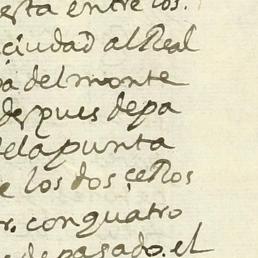 esta entre los.
çiudad al Real
pa del monte
despues de pa
de la punta
e los dos çeRos
r. con quatro
de pasado. el